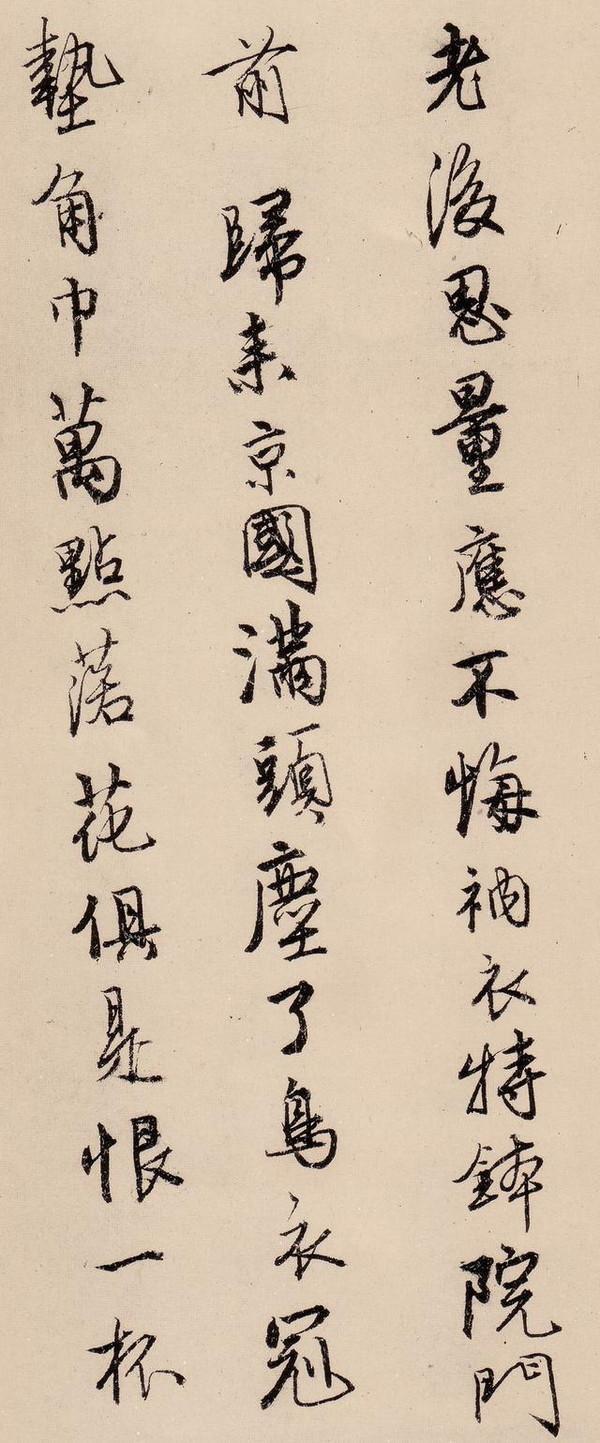 老後思量應不悔衲衣持鉢院門
前 歸來京國滿頭塵了鳥衣冠
墊角巾萬點落花俱是恨一杯